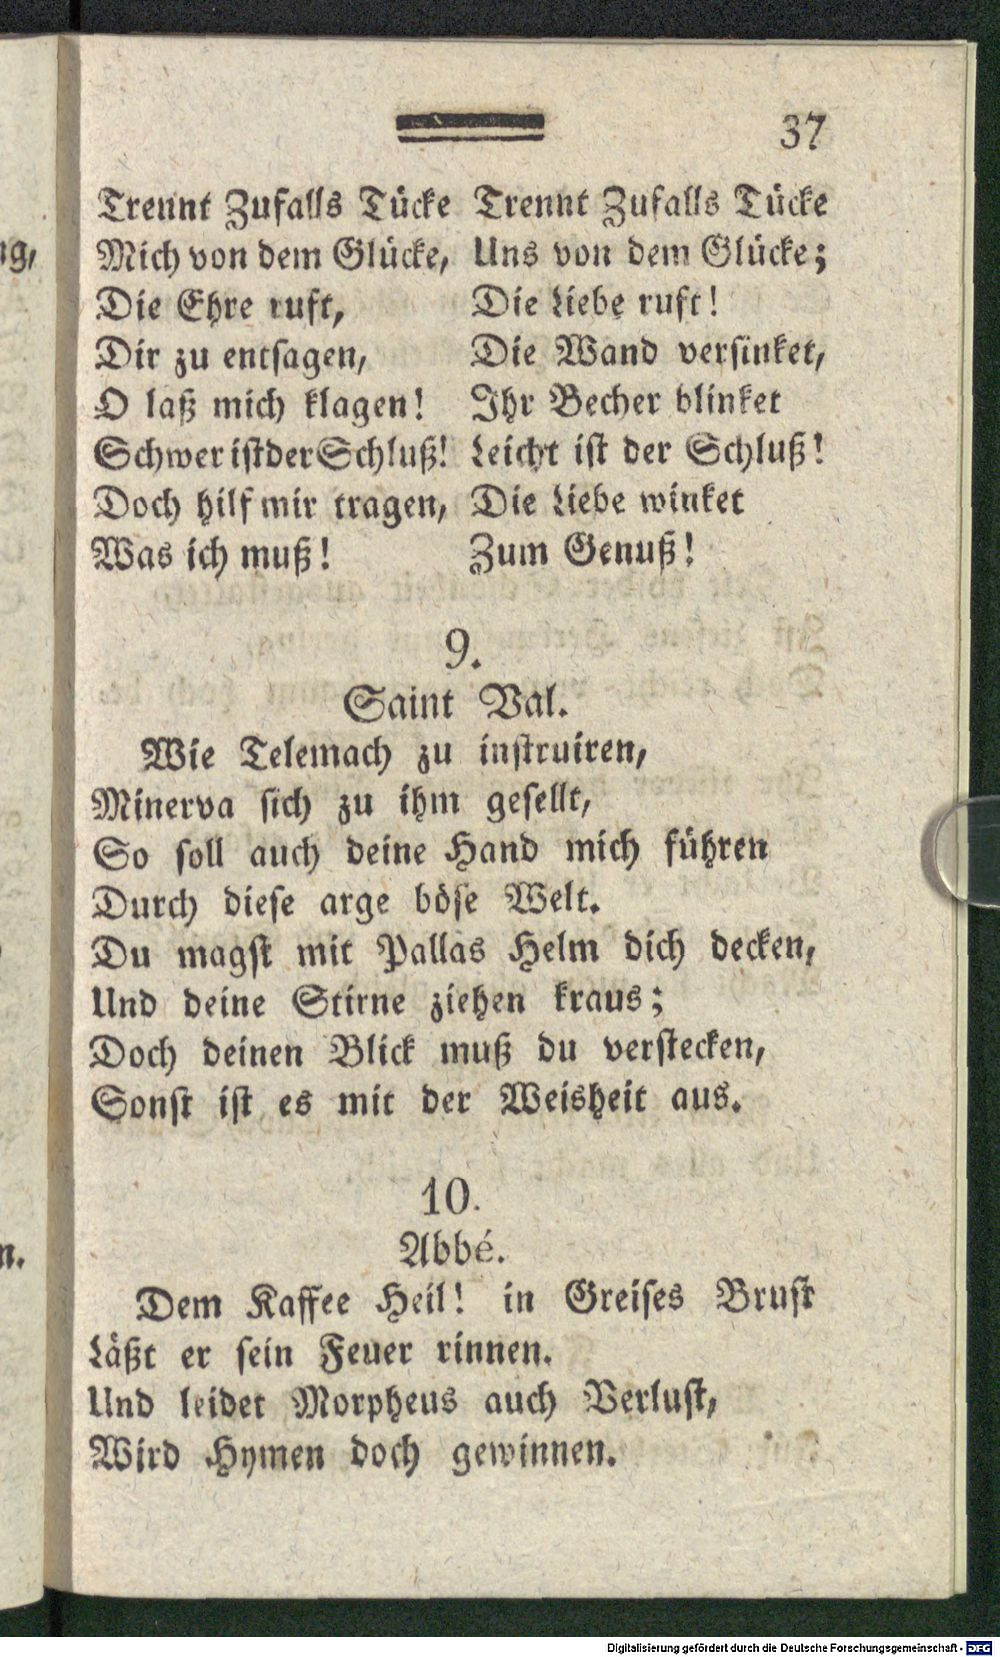 37
Trennt Zufalls Tücke
Mich von dem Glücke,
Die Ehre ruft,
Dir zu entsagen,
O laß mich klagen!
Schwer ist der Schluß!
Doch hilf mir tragen,
Was ich muß!
Trennt Zufalls Tücke
Uns von dem Glücke;
Die Liebe ruft!
Die Wand versinket,
Ihr Becher blinket
Leicht ist der Schluß!
Die Liebe winket
Zum Genuß!
9.
Saint Val.
Wie Telemach zu instruiren,
Minerva sich zu ihm gesellt,
So soll auch deine Hand mich führen
Durch diese arge böse Welt.
Du magst mit Pallas Helm dich decken,
Und deine Stirne ziehen kraus;
Doch deinen Blick muß du verstecken,
Sonst ist es mit der Weisheit aus.
10.
Abbé.
Dem Kaffee Heil! in Greises Brust
Läßt er sein Feuer rinnen.
Und leidet Morpheus auch Verlust,
Wird Hymen doch gewinnen.
Digitalisierung gefördert durch die Deutsche Forschungsgemeinschaft - DFG